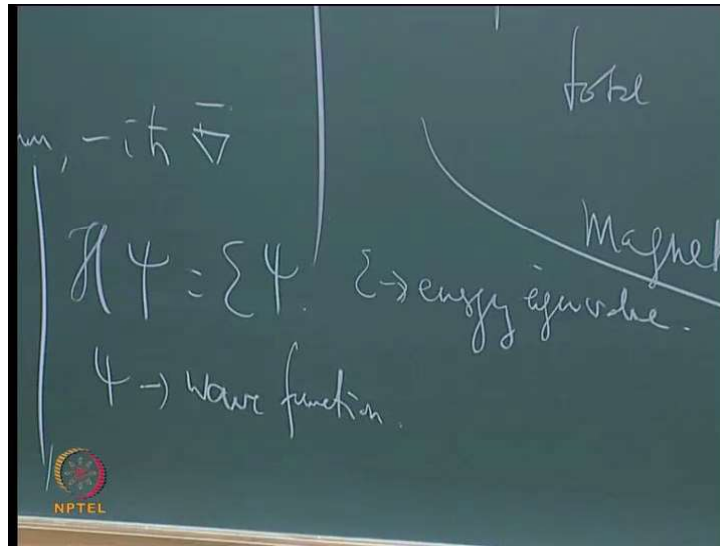 total
, -iħ ∇̄
Magnet
ℋ Ψ = ℰ Ψ. ℰ → energy eigenvalue.
Ψ → wave function.
NPTEL